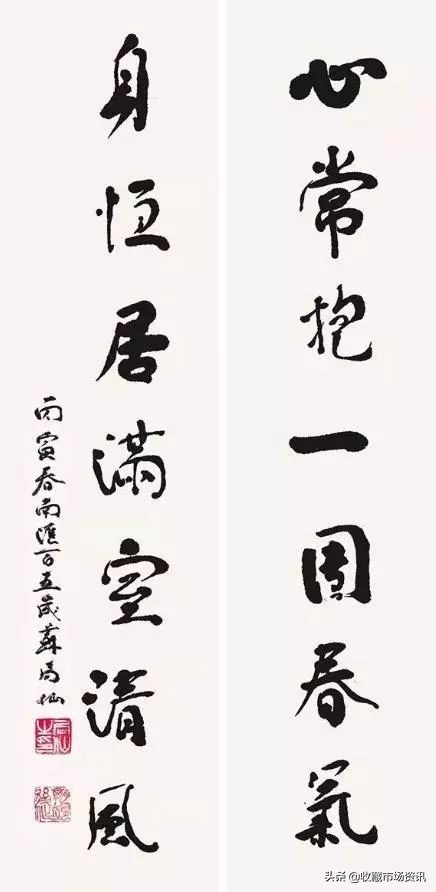 心常抱一團春氣
身恒居滿室清風
丙寅春南匯百五歲蘇局仙
头条 @收藏市场资讯